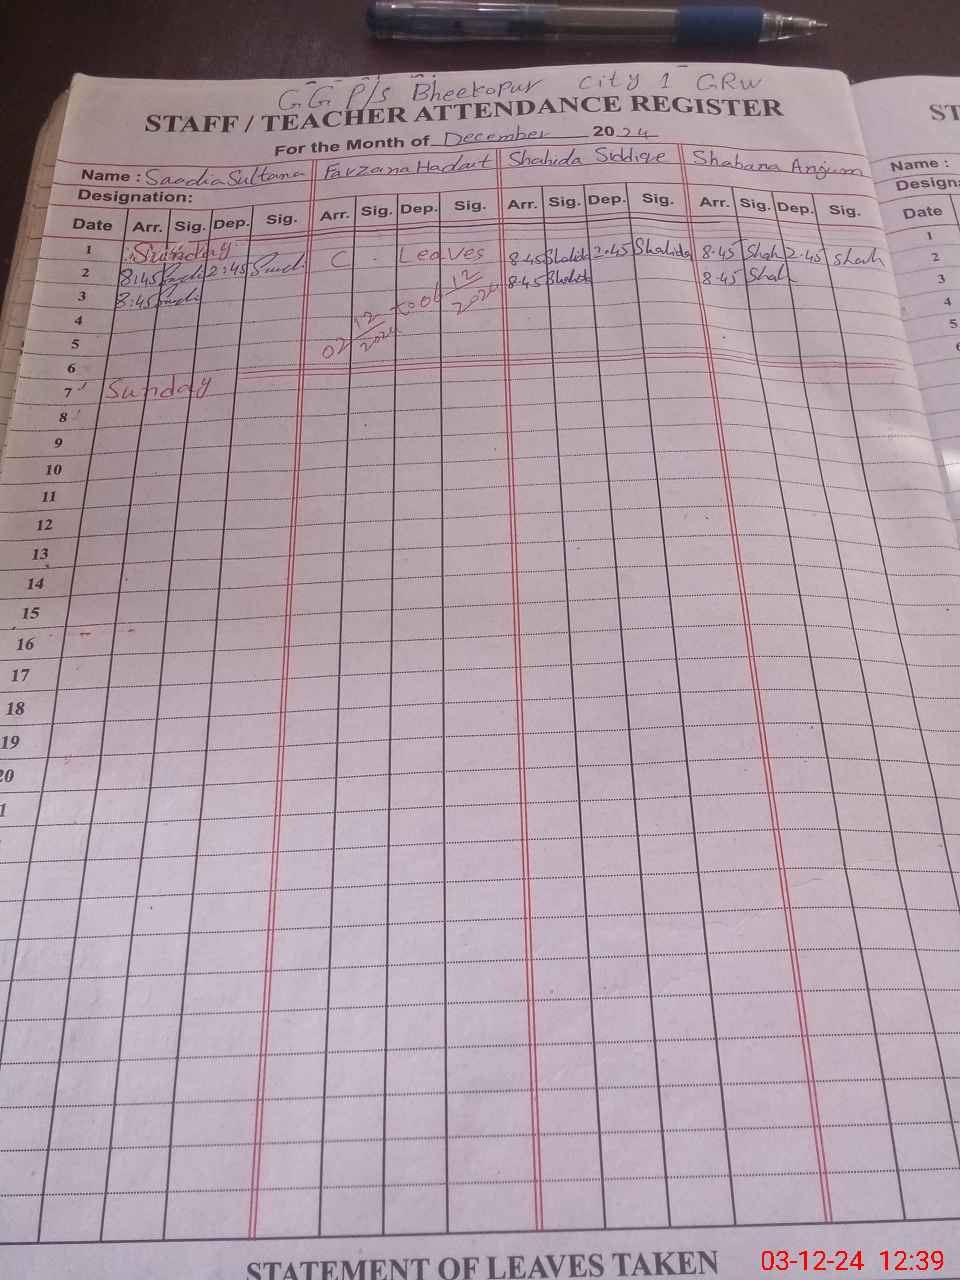 GG P/s Bheekopur City 1 GRW
STAFF / TEACHER ATTENDANCE REGISTER
For the Month of December 2024
Name : Saadia Sultana Farzana Hadait Shahida Siddique Shabana Anjum
Designation:
Date Arr. Sig. Dep. Sig. Arr. Sig. Dep. Sig. Arr. Sig. Dep. Sig. Arr. Sig. Dep. Sig.
1 Sunday
2 8:45 2:45 C. Leaves 8.45 Shahida 2.45 Shahida 8.45 Shah 2.45 Shah
3 8:45 02/12/2024 to 06/12/2024 8.45 Shahida 8.45 Shah
4
5
6
7 Sunday
8
9
10
11
12
13
14
15
16
17
18
19
20
1
STATEMENT OF LEAVES TAKEN
ST
Name :
Design
Date
1
2
3
4
5
6
03-12-24 12:39